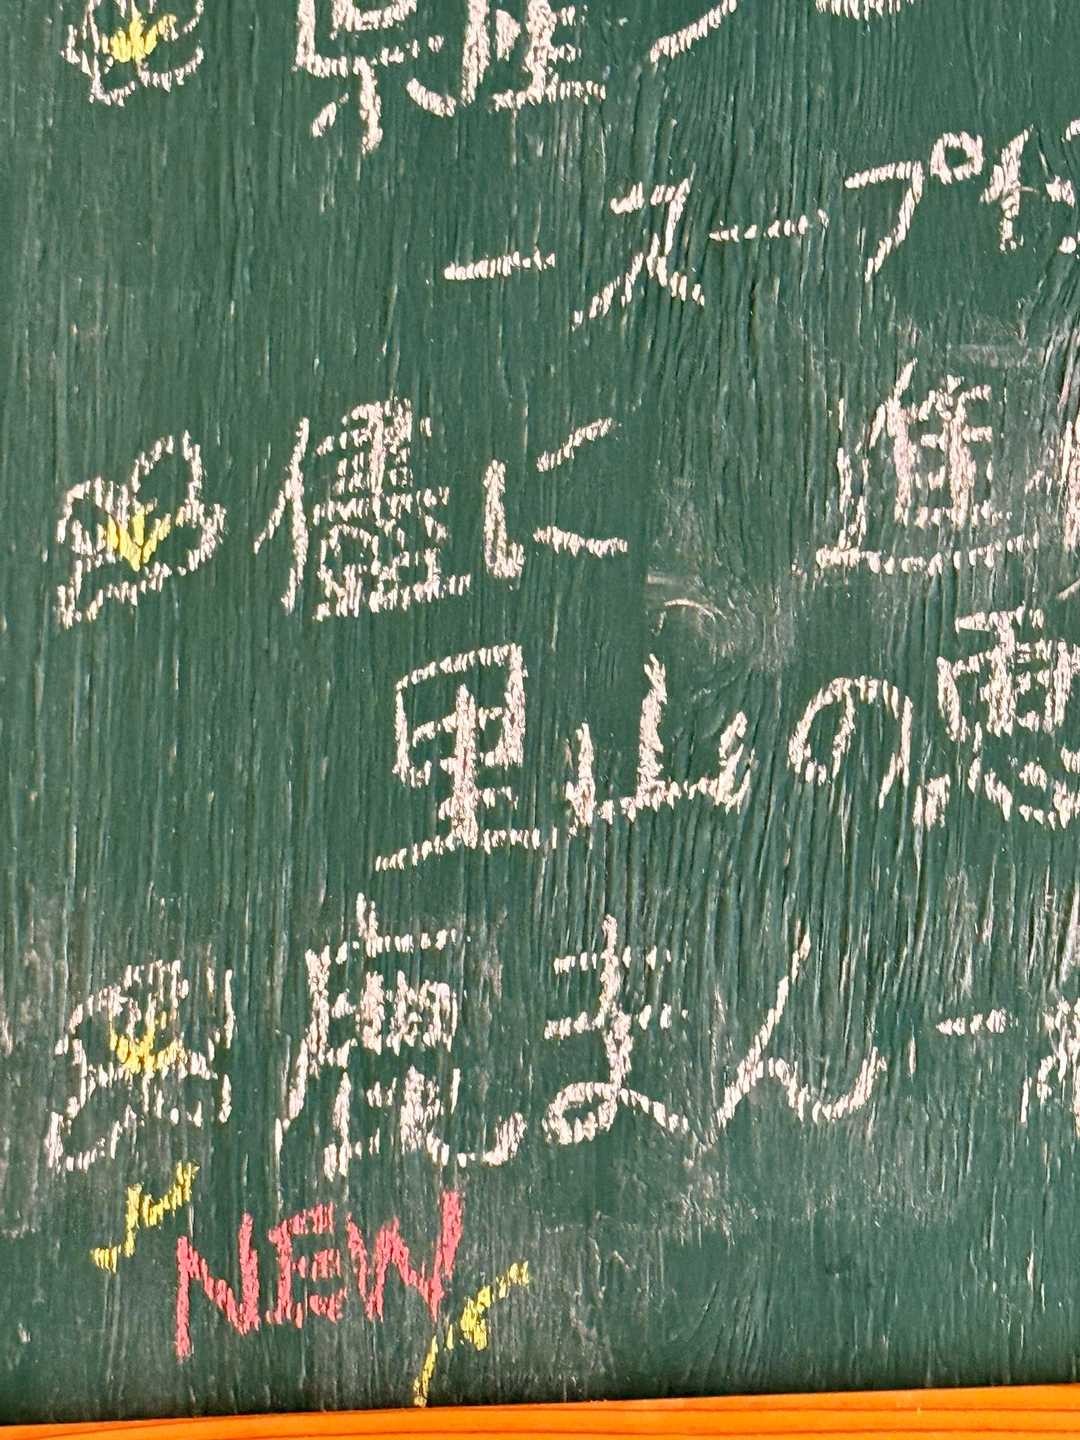 ースープ付
儘に 進
里山の恵
鹿まん
NEW